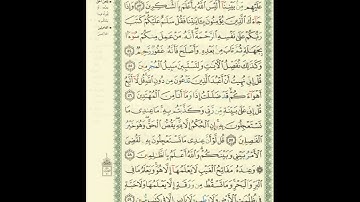 عَلَيْهِم مِّنۢ بَيْنِنَآ أَلَيْسَ ٱللَّهُ بِأَعْلَمَ بِٱلشَّـٰكِرِينَ ٥٣ وَإِذَا
جَآءَكَ ٱلَّذِينَ يُؤْمِنُونَ بِـَٔايَـٰتِنَا فَقُلْ سَلَـٰمٌ عَلَيْكُمْ كَتَبَ
رَبُّكُمْ عَلَىٰ نَفْسِهِ ٱلرَّحْمَةَ أَنَّهُۥ مَنْ عَمِلَ مِنكُمْ سُوٓءًۢا
بِجَهَـٰلَةٍ ثُمَّ تَابَ مِنۢ بَعْدِهِۦ وَأَصْلَحَ فَأَنَّهُۥ غَفُورٌ رَّحِيمٌ ٥٤
وَكَذَٰلِكَ نُفَصِّلُ ٱلْـَٔايَـٰتِ وَلِتَسْتَبِينَ سَبِيلُ ٱلْمُجْرِمِينَ ٥٥
قُلْ إِنِّى نُهِيتُ أَنْ أَعْبُدَ ٱلَّذِينَ تَدْعُونَ مِن دُونِ ٱللَّهِ قُل لَّآ أَتَّبِعُ
أَهْوَآءَكُمْ قَدْ ضَلَلْتُ إِذًا وَمَآ أَنَا۠ مِنَ ٱلْمُهْتَدِينَ ٥٦
قُلْ إِنِّى عَلَىٰ بَيِّنَةٍ مِّن رَّبِّى وَكَذَّبْتُم بِهِۦ مَا عِندِى مَا
تَسْتَعْجِلُونَ بِهِۦٓ إِنِ ٱلْحُكْمُ إِلَّا لِلَّهِ يَقُصُّ ٱلْحَقَّ وَهُوَ خَيْرُ
ٱلْفَـٰصِلِينَ ٥٧ قُل لَّوْ أَنَّ عِندِى مَا تَسْتَعْجِلُونَ بِهِۦ لَقُضِىَ
ٱلْأَمْرُ بَيْنِى وَبَيْنَكُمْ وَٱللَّهُ أَعْلَمُ بِٱلظَّـٰلِمِينَ ٥٨
وَعِندَهُۥ مَفَاتِحُ ٱلْغَيْبِ لَا يَعْلَمُهَآ إِلَّا هُوَ وَيَعْلَمُ مَا فِى
ٱلْبَرِّ وَٱلْبَحْرِ وَمَا تَسْقُطُ مِن وَرَقَةٍ إِلَّا يَعْلَمُهَا وَلَا حَبَّةٍ
فِى ظُلُمَـٰتِ ٱلْأَرْضِ وَلَا رَطْبٍ وَلَا يَابِسٍ إِلَّا فِى كِتَـٰبٍ مُّبِينٍ ٥٩